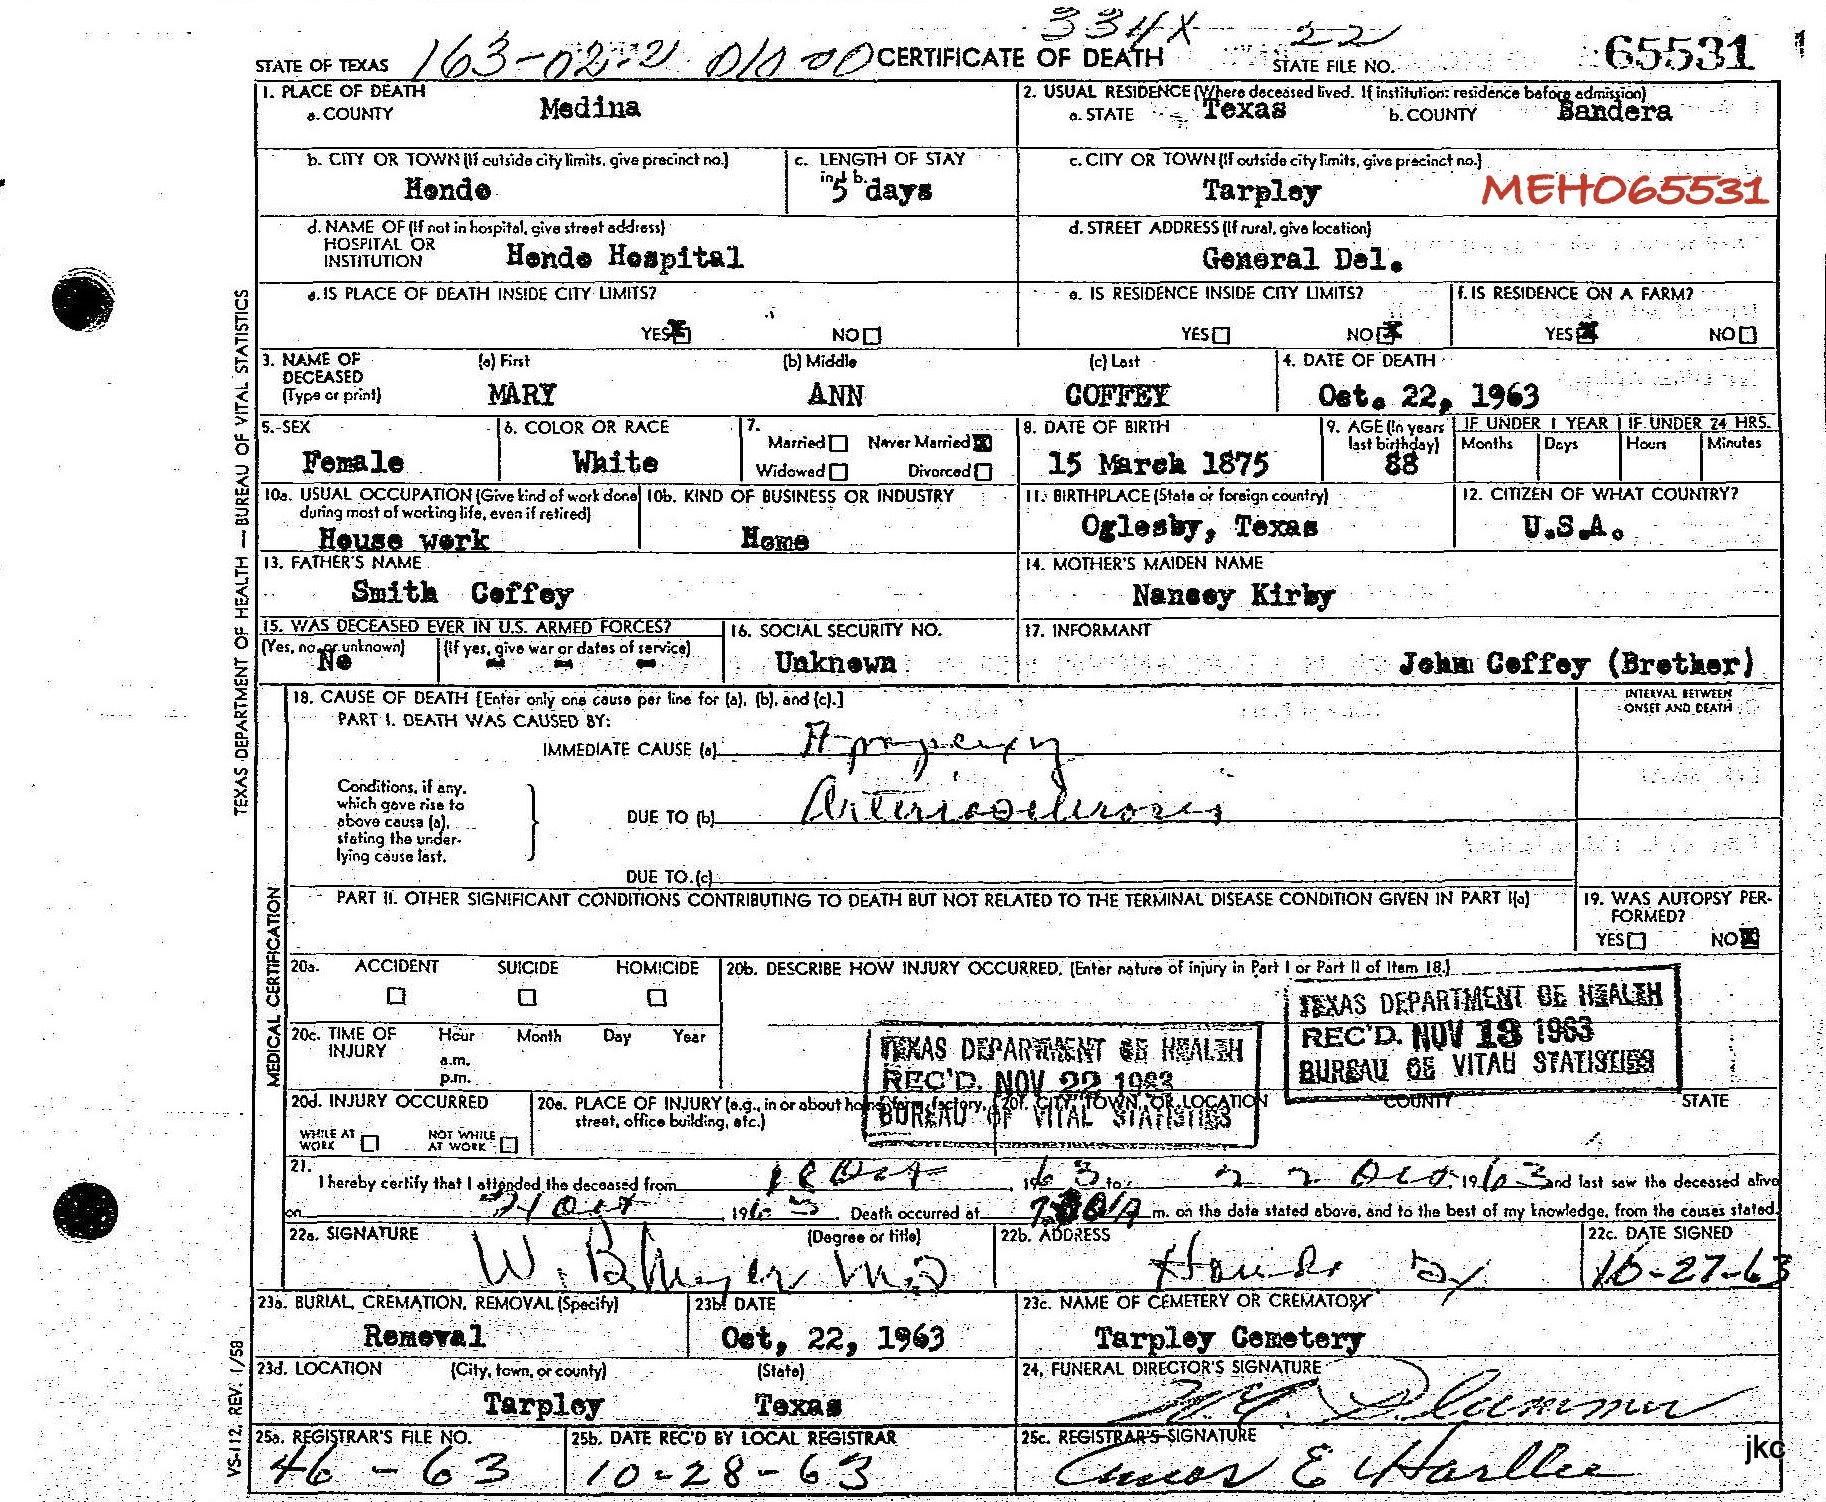 334X 22
STATE OF TEXAS 163-02-2 010-00 CERTIFICATE OF DEATH STATE FILE NO. 65531
1. PLACE OF DEATH
a. COUNTY Medina
2. USUAL RESIDENCE (Where deceased lived. If institution: residence before admission)
a. STATE Texas b. COUNTY Bandera
b. CITY OR TOWN (If outside city limits, give precinct no.) Hondo
c. LENGTH OF STAY in 1 b. 5 days
c. CITY OR TOWN (If outside city limits, give precinct no.) Tarpley
MEHO65531
d. NAME OF (If not in hospital, give street address)
HOSPITAL OR
INSTITUTION Hondo Hospital
d. STREET ADDRESS (If rural, give location)
General Del.
e. IS PLACE OF DEATH INSIDE CITY LIMITS?
YES NO
e. IS RESIDENCE INSIDE CITY LIMITS?
YES NO
f. IS RESIDENCE ON A FARM?
YES NO
3. NAME OF DECEASED (Type or print)
(a) First MARY
(b) Middle ANN
(c) Last COFFEY
4. DATE OF DEATH
Oct. 22, 1963
5. SEX
Female
6. COLOR OR RACE
White
7. Married Never Married
Widowed Divorced
8. DATE OF BIRTH
15 March 1875
9. AGE (In years last birthday)
88
IF UNDER 1 YEAR
Months Days
IF UNDER 24 HRS.
Hours Minutes
10a. USUAL OCCUPATION (Give kind of work done during most of working life, even if retired)
House work
10b. KIND OF BUSINESS OR INDUSTRY
Home
11. BIRTHPLACE (State or foreign country)
Oglesby, Texas
12. CITIZEN OF WHAT COUNTRY?
U.S.A.
13. FATHER'S NAME
Smith Coffey
14. MOTHER'S MAIDEN NAME
Nancey Kirby
15. WAS DECEASED EVER IN U.S. ARMED FORCES?
(Yes, no, or unknown) No
(If yes, give war or dates of service) - - -
16. SOCIAL SECURITY NO.
Unknown
17. INFORMANT
John Coffey (Brother)
18. CAUSE OF DEATH [Enter only one cause per line for (a), (b), and (c).]
PART I. DEATH WAS CAUSED BY:
IMMEDIATE CAUSE (a)
INTERVAL BETWEEN ONSET AND DEATH
Conditions, if any, which gave rise to above cause (a), stating the underlying cause last.
DUE TO (b) Arteriosclerosis
DUE TO (c)
PART II. OTHER SIGNIFICANT CONDITIONS CONTRIBUTING TO DEATH BUT NOT RELATED TO THE TERMINAL DISEASE CONDITION GIVEN IN PART I(a)
19. WAS AUTOPSY PERFORMED?
YES NO
20a. ACCIDENT SUICIDE HOMICIDE
20b. DESCRIBE HOW INJURY OCCURRED. (Enter nature of injury in Part I or Part II of Item 18.)
TEXAS DEPARTMENT OF HEALTH
REC'D. NOV 13 1963
BUREAU OF VITAL STATISTICS
20c. TIME OF INJURY Hour Month Day Year
a.m.
p.m.
TEXAS DEPARTMENT OF HEALTH
REC'D. NOV 22 1963
BUREAU OF VITAL STATISTICS
20d. INJURY OCCURRED
WHILE AT WORK NOT WHILE AT WORK
20e. PLACE OF INJURY (e.g., in or about home, farm, factory, street, office building, etc.)
20f. CITY, TOWN, OR LOCATION COUNTY STATE
21.
I hereby certify that I attended the deceased from 18 Oct, 1963 to 22 Oct, 1963 and last saw the deceased alive
on 21 Oct, 1963. Death occurred at m. on the date stated above, and to the best of my knowledge, from the causes stated.
22a. SIGNATURE (Degree or title)
W. B. Meyer M.D
22b. ADDRESS
Hondo Tx
22c. DATE SIGNED
10-27-63
23a. BURIAL, CREMATION, REMOVAL (Specify)
Removal
23b. DATE
Oct, 22, 1963
23c. NAME OF CEMETERY OR CREMATORY
Tarpley Cemetery
23d. LOCATION (City, town, or county) (State)
Tarpley Texas
24. FUNERAL DIRECTOR'S SIGNATURE
25a. REGISTRAR'S FILE NO.
46-63
25b. DATE REC'D BY LOCAL REGISTRAR
10-28-63
25c. REGISTRAR'S SIGNATURE
jkc
TEXAS DEPARTMENT OF HEALTH — BUREAU OF VITAL STATISTICS
MEDICAL CERTIFICATION
VS-112, REV. 1/58